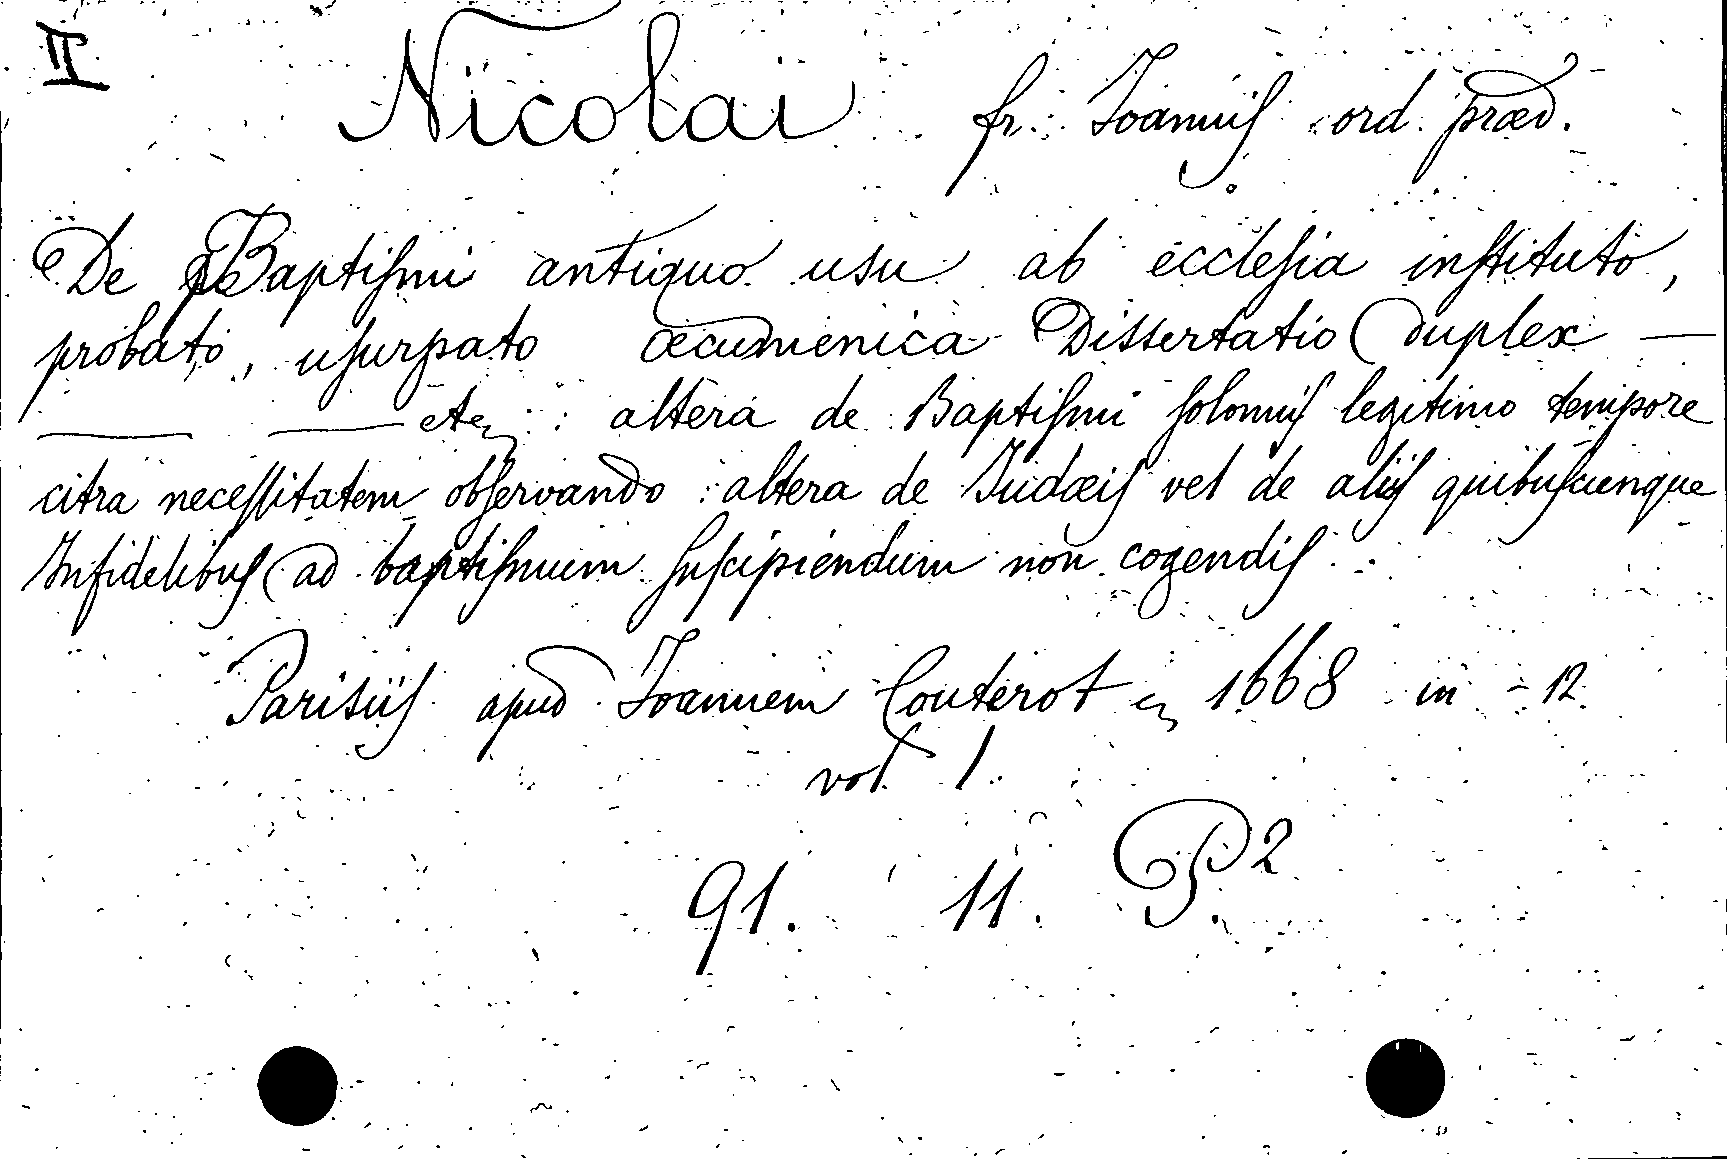 II
Nicolai fr. Joannis ord. præd.
De Baptismi antiquo usu ab ecclesia instituto,
probato, usurpato œcumenica Dissertatio duplex —
— — etc : altera de Baptismi solomnis legitimo tempore
citra necessitatem observando : altera de Judæis vel de aliis quibuscunque
Infidelibus ad baptismum suscipiendum non cogendis.
Parisiis apud Joannem Couterot 1668 in - 12
vol. 1.
91. 11. P.2